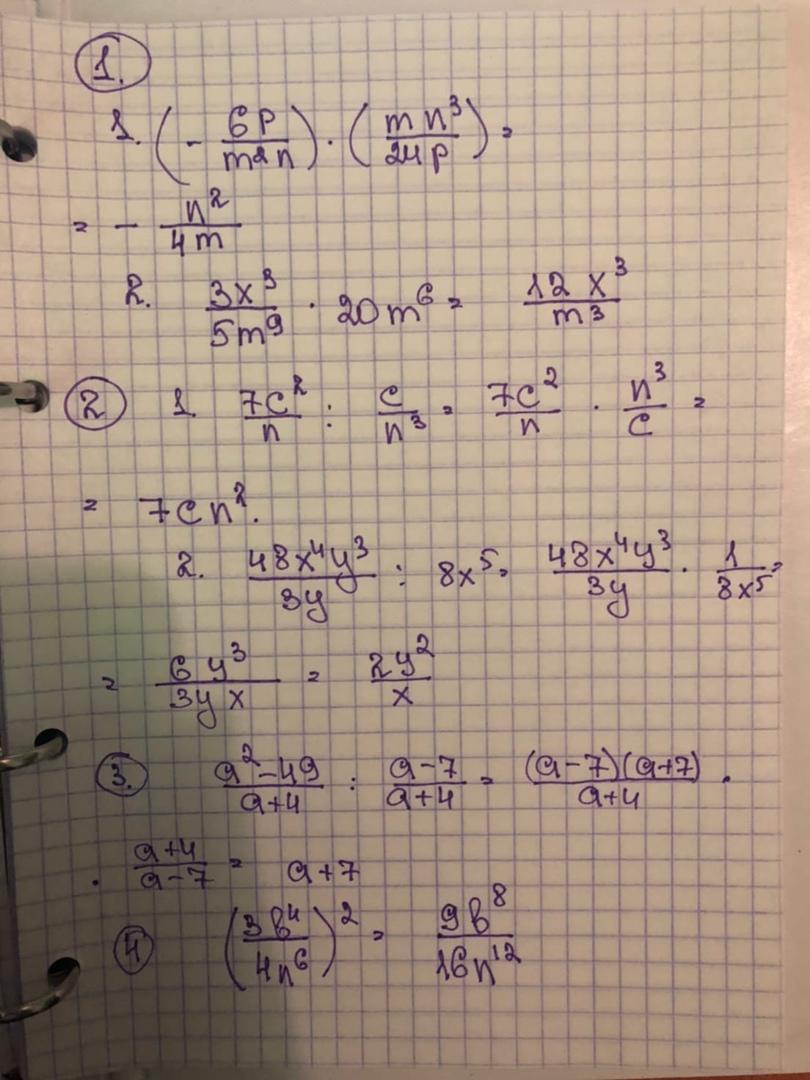 1.
1. (- 6p/m²n) · (mn³/24p) =
= - n²/4m
2. 3x³/5m⁹ · 20m⁶ = 12x³/m³
2 1. 7c²/n : c/n³ = 7c²/n · n³/c =
= 7cn².
2. 48x⁴y³/3y : 8x⁵ = 48x⁴y³/3y · 1/8x⁵ =
= 6y³/3yx = 2y²/x
3. a²-49/a+4 : a-7/a+4 = (a-7)(a+7)/a+4 ·
· a+4/a-7 = a+7
4 (3b⁴/4n⁶)² = 9b⁸/16n¹²